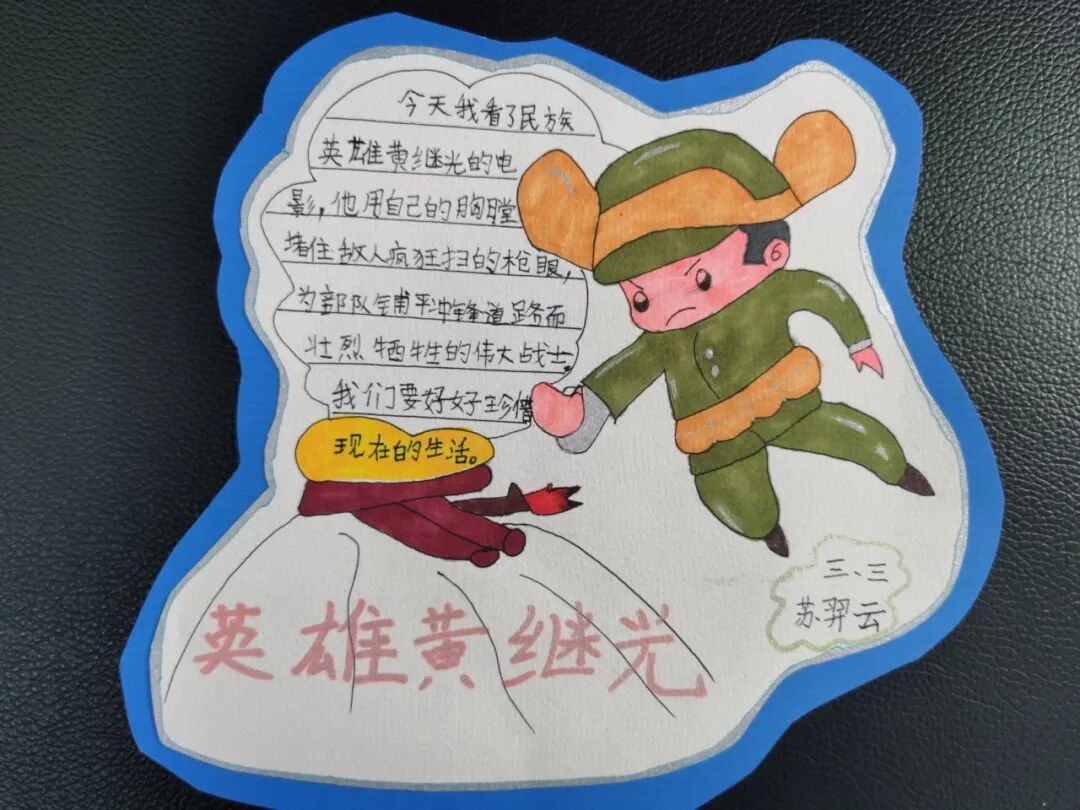 今天我看了民族
英雄黄继光的电
影，他用自己的胸膛
堵住敌人疯狂扫的枪眼，
为部队铺平冲锋道路而
壮烈牺牲的伟大战士。
我们要好好珍惜
现在的生活。
英雄黄继光
三、三
苏羿云